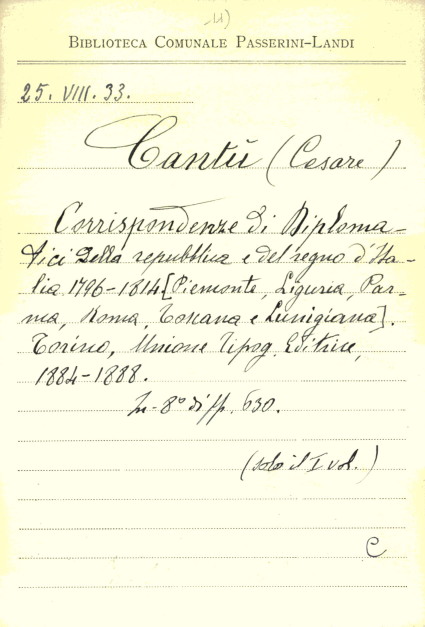 11)
BIBLIOTECA COMUNALE PASSERINI-LANDI
25. VIII. 33.
Cantù (Cesare)
Corrispondenze di Diploma-
tici della repubblica e del regno d'Ita-
lia 1796-1814 [Piemonte, Liguria, Par-
ma, Roma, Toscana e Lunigiana].
Torino, Unione Tipog. Editrice,
1884-1888.
In-8° di pp. 630.
(solo il I vol.)
C